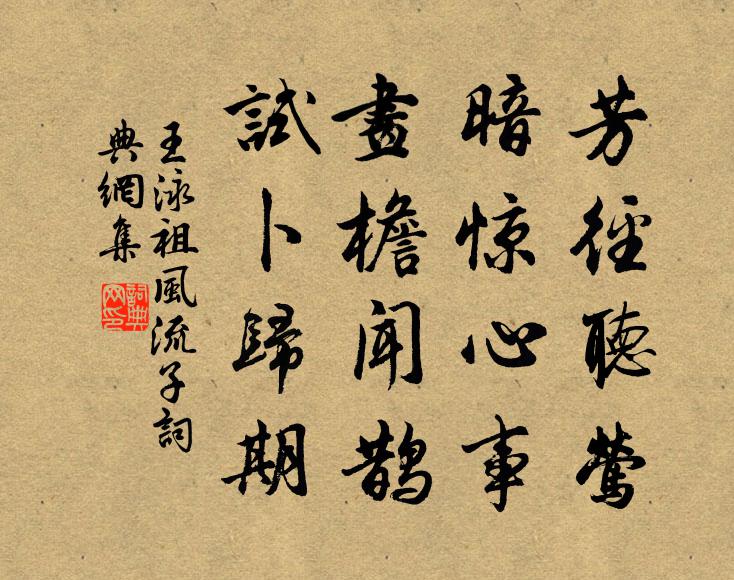 芳徑聽鶯
暗惊心事
畫檐聞鵲
試卜歸期
王泳祖風流子詞
典網集
詞典
网印